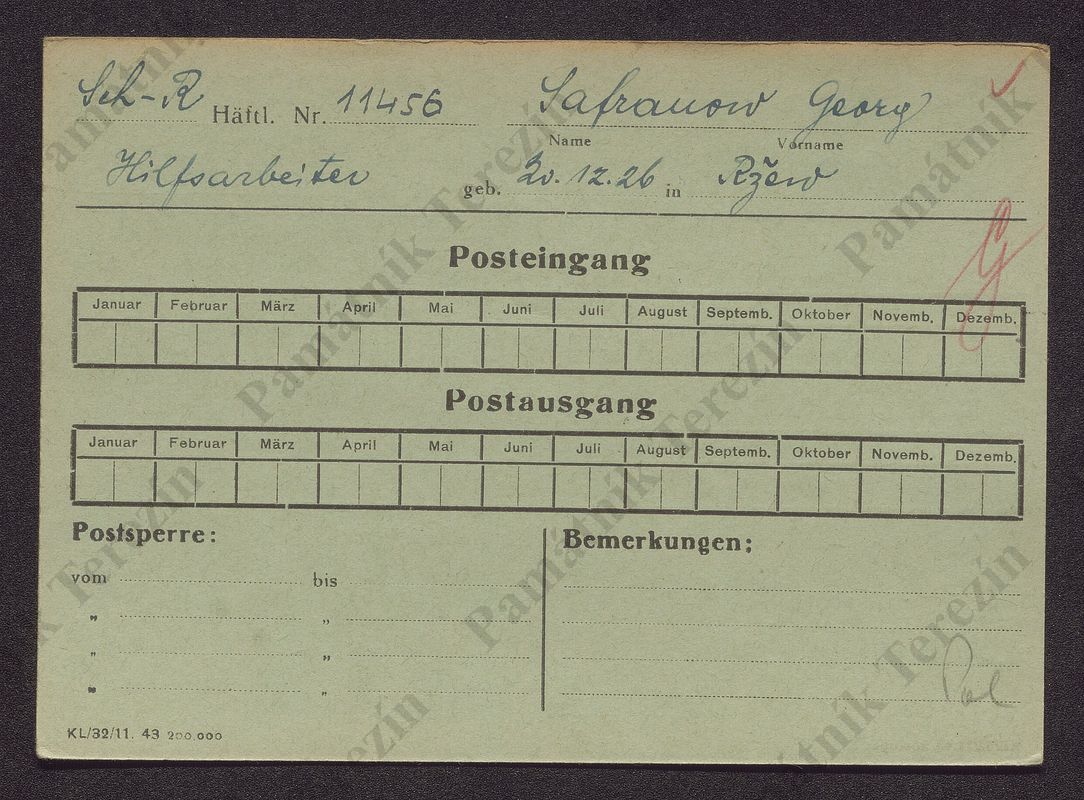 Sch-R Häftl. Nr. 11456 Safranow Georg
Name Vorname
Hilfsarbeiter geb. 20.12.26 in Ržew
Posteingang
Januar Februar März April Mai Juni Juli August Septemb. Oktober Novemb. Dezemb.
Postausgang
Januar Februar März April Mai Juni Juli August Septemb. Oktober Novemb. Dezemb.
Postsperre: Bemerkungen:
vom bis
„ „
„ „
„ „
Pol
KL/32/11. 43 200.000
Památník Terezín